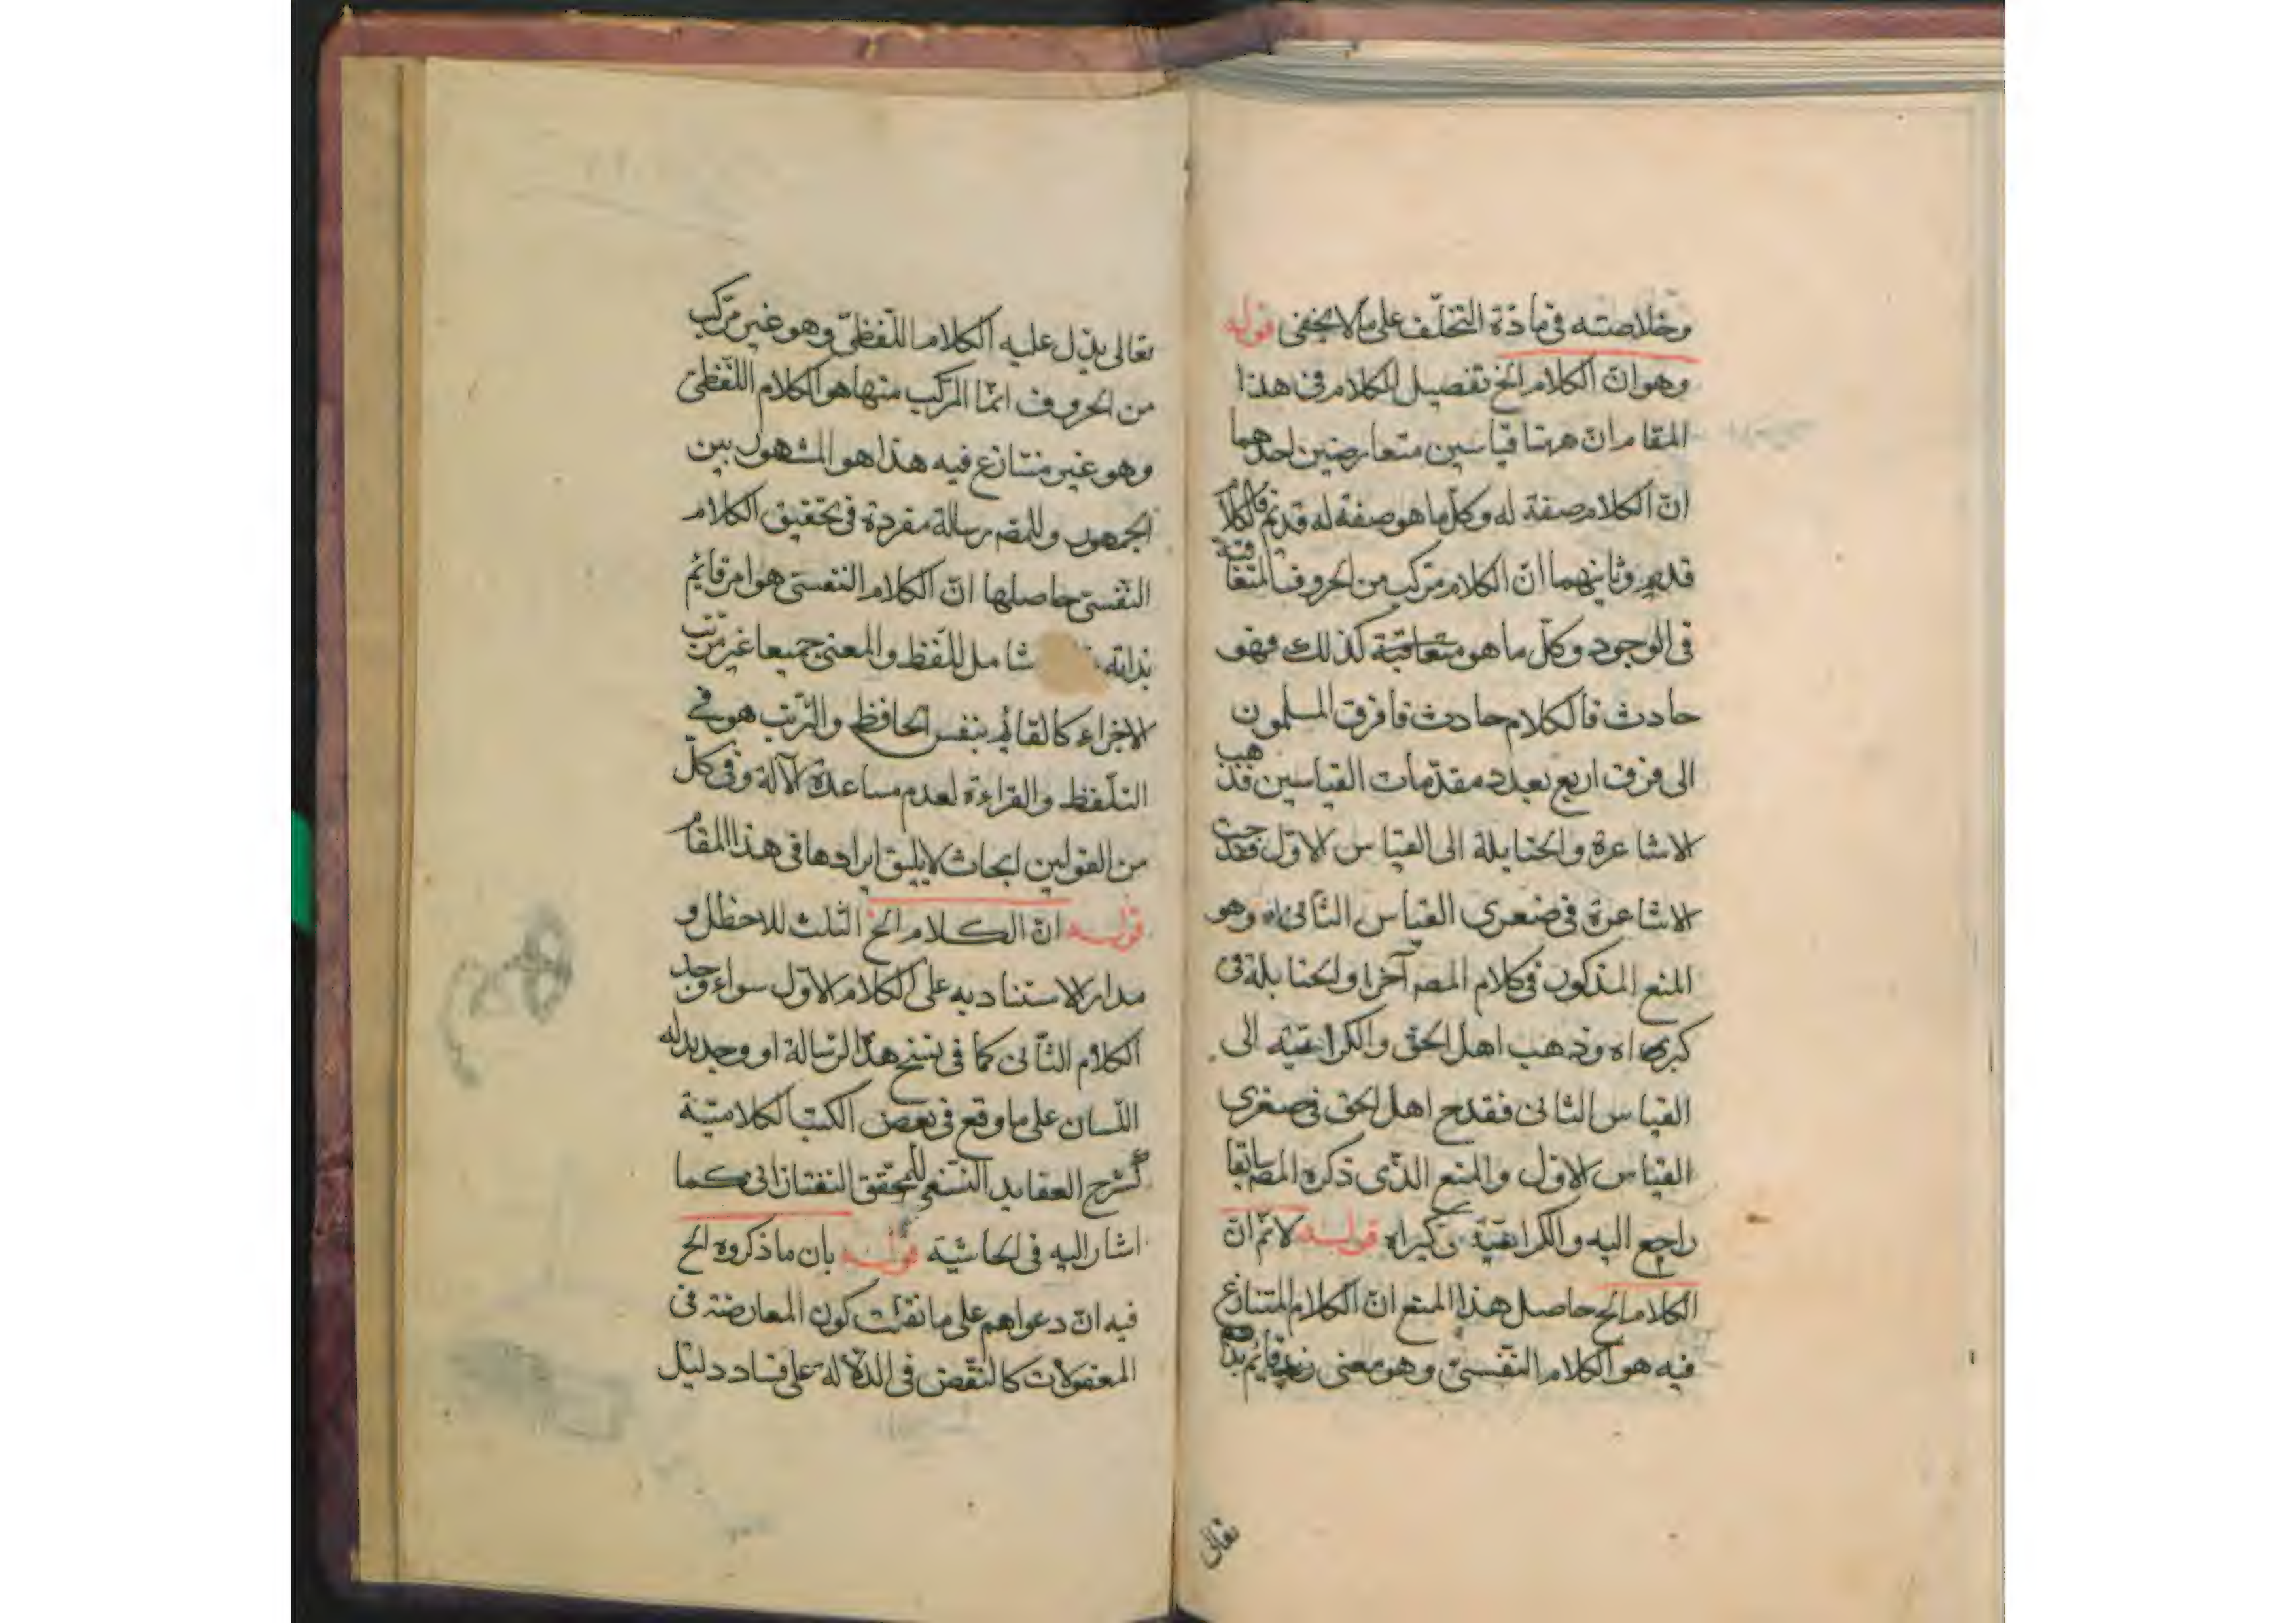 وخلاصته فى مادة التخلّف على ما لا يخفى قوله
وهو انّ الكلام الخ تفصيل الكلام فى هذا
المقام انّ ههنا قياسين متعارضين احدهما
انّ الكلام صفة له وكلّ ما هو صفة له قديم فالكلام
قديم وثانيهما انّ الكلام مركب من الحروف المتعاقبة
فى الوجود وكلّ ما هو متعاقبة كذلك فهو
حادث فالكلام حادث فافرق المسلمون
الى فرق اربع بعدد مقدّمات القياسين فذهب
الاشاعرة والحنابلة الى القياس الاوّل فقدحت
الاشاعرة فى صغرى القياس الثانى وهو
المنع المذكور فى كلام المصـ آخرا والحنابلة فى
كبراه وذهب اهل الحق والكراميّة الى
القياس الثانى فقدح اهل الحق فى صغرى
القياس الاوّل والمنع الذّى ذكره المصـ سابقا
راجع اليه والكراميّة فى كبراه قوله لا نمّ انّ
الكلام الخ حاصل هذا المنع انّ الكلام المتنازع
فيه هو الكلام النّفسىّ وهو معنى قائم بذاته
تعالى
تعالى يدّل عليه الكلام اللّفظىّ وهو غير مركب
من الحروف انمّا المركّب منها هو الكلام اللّفظىّ
وهو غير متنازع فيه هذا هو المشهور بين
الجمهور وللمصـ رسالة مفردة فى تحقيق الكلام
النّفسىّ حاصلها انّ الكلام النّفسى هو امر قائم
بذاته شامل للّفظ والمعنى جميعا غير مرتب
الاجزاء كالقائم بنفس الحافظ والترّتب هو فى
التلّفظ والقراءة لعدم مساعدة الآلة وفى كلّ
من القولين ابحاث لا يليق ايرادها فى هذا المقام
قوله انّ الكلام الخ الثلث للاحظل و
مدار الاستناد به على الكلام الاوّل سواء وجد
الكلام الثّانى كما فى نسخ هذا الرّسالة او وجد بدله
اللّسان على ما وقع فى بعض الكتب الكلاميّة
كشرح العقايد النّسفى للمحقّق التفتازانى كما
اشار اليه فى الحاشية قوله بان ما ذكروه الخ
فيه انّ دعواهم على ما نقلت كون المعارضة فى
المعقولات كالنّقض فى الدّلالة على فساد دليل